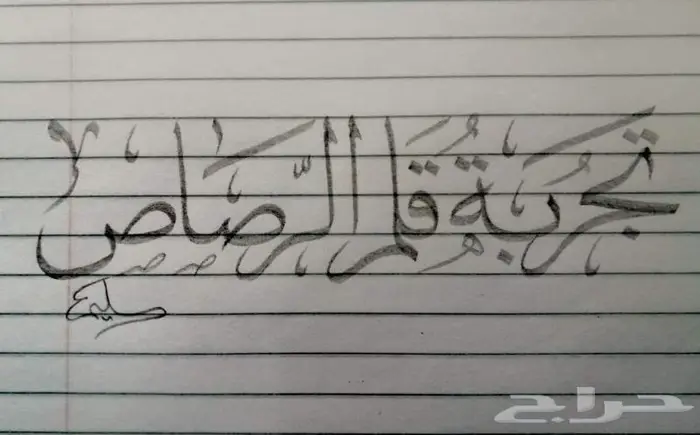 تجربة قلم الرصاص
سليم
حراج